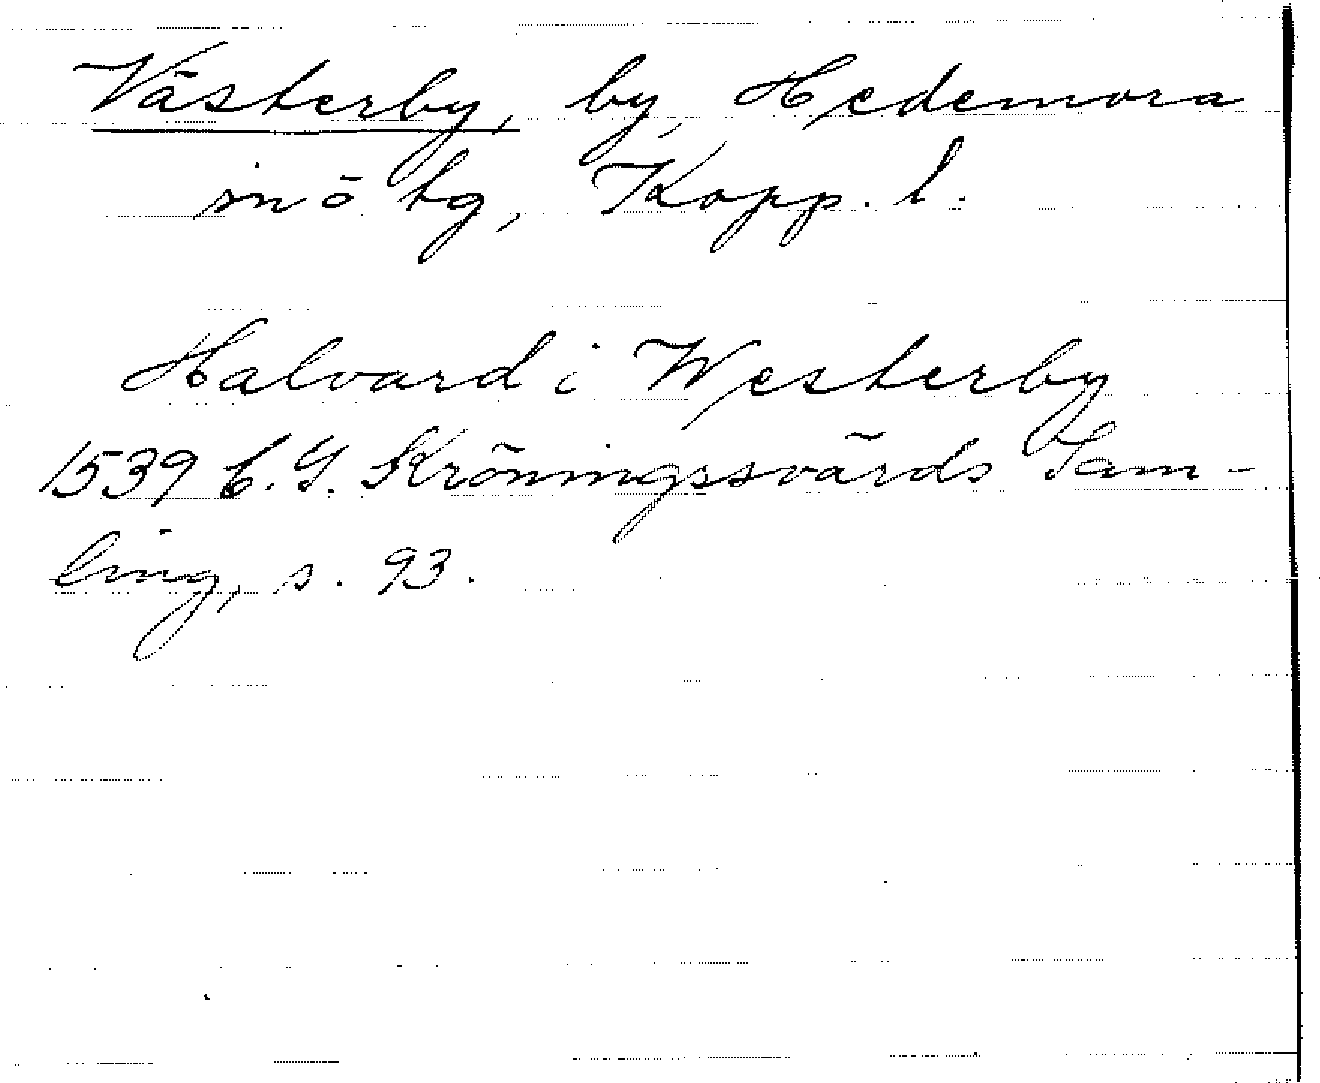 Västerby, by, Hedemora
snö tg, Kopp. l.
Halvard i Westerby
1539 C. G. Kröningssvärds Sam-
ling, s. 93.